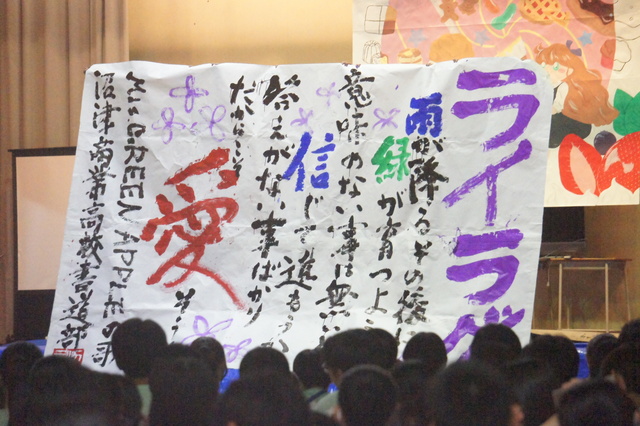 ライラック
雨が降るその後に
緑が育つよう
意味のない事は無い
信じて進もうか
答えがない事ばかり
だからこそ
愛
Mrs.GREEN APPLEの歌
沼津商業高校書道部